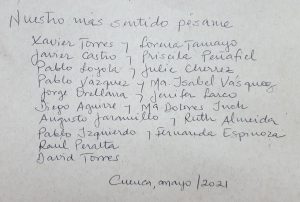 Nuestro mas sentido pesame
Xavier Torres y Lorena Tamayo
Javier Castro y Priscila Peñafiel
Pablo Loyola y Julie Cherrez
Pablo Vázquez y Ma. Isabel Vásquez
Jorge Orellana y Jenifer Larco
Diego Aguirre y Ma Dolores
Augusto Jaramillo y Ruth Almeida
Pablo Izquierdo y Fernanda Espinoza
Raul Peralta
David Torres
Cuenca, mayo/2021